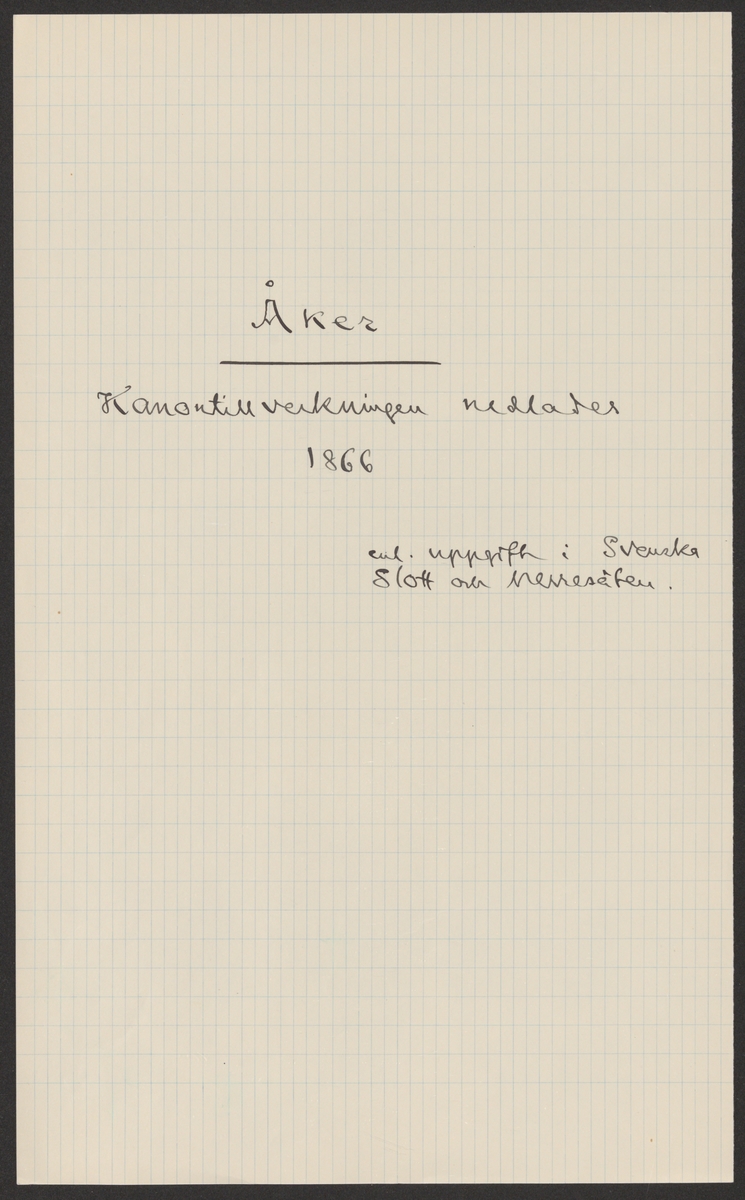 Åker
Kanontillverkningen nedlades
1866
enl. uppgift i Svenska
Slott och Herresäten.